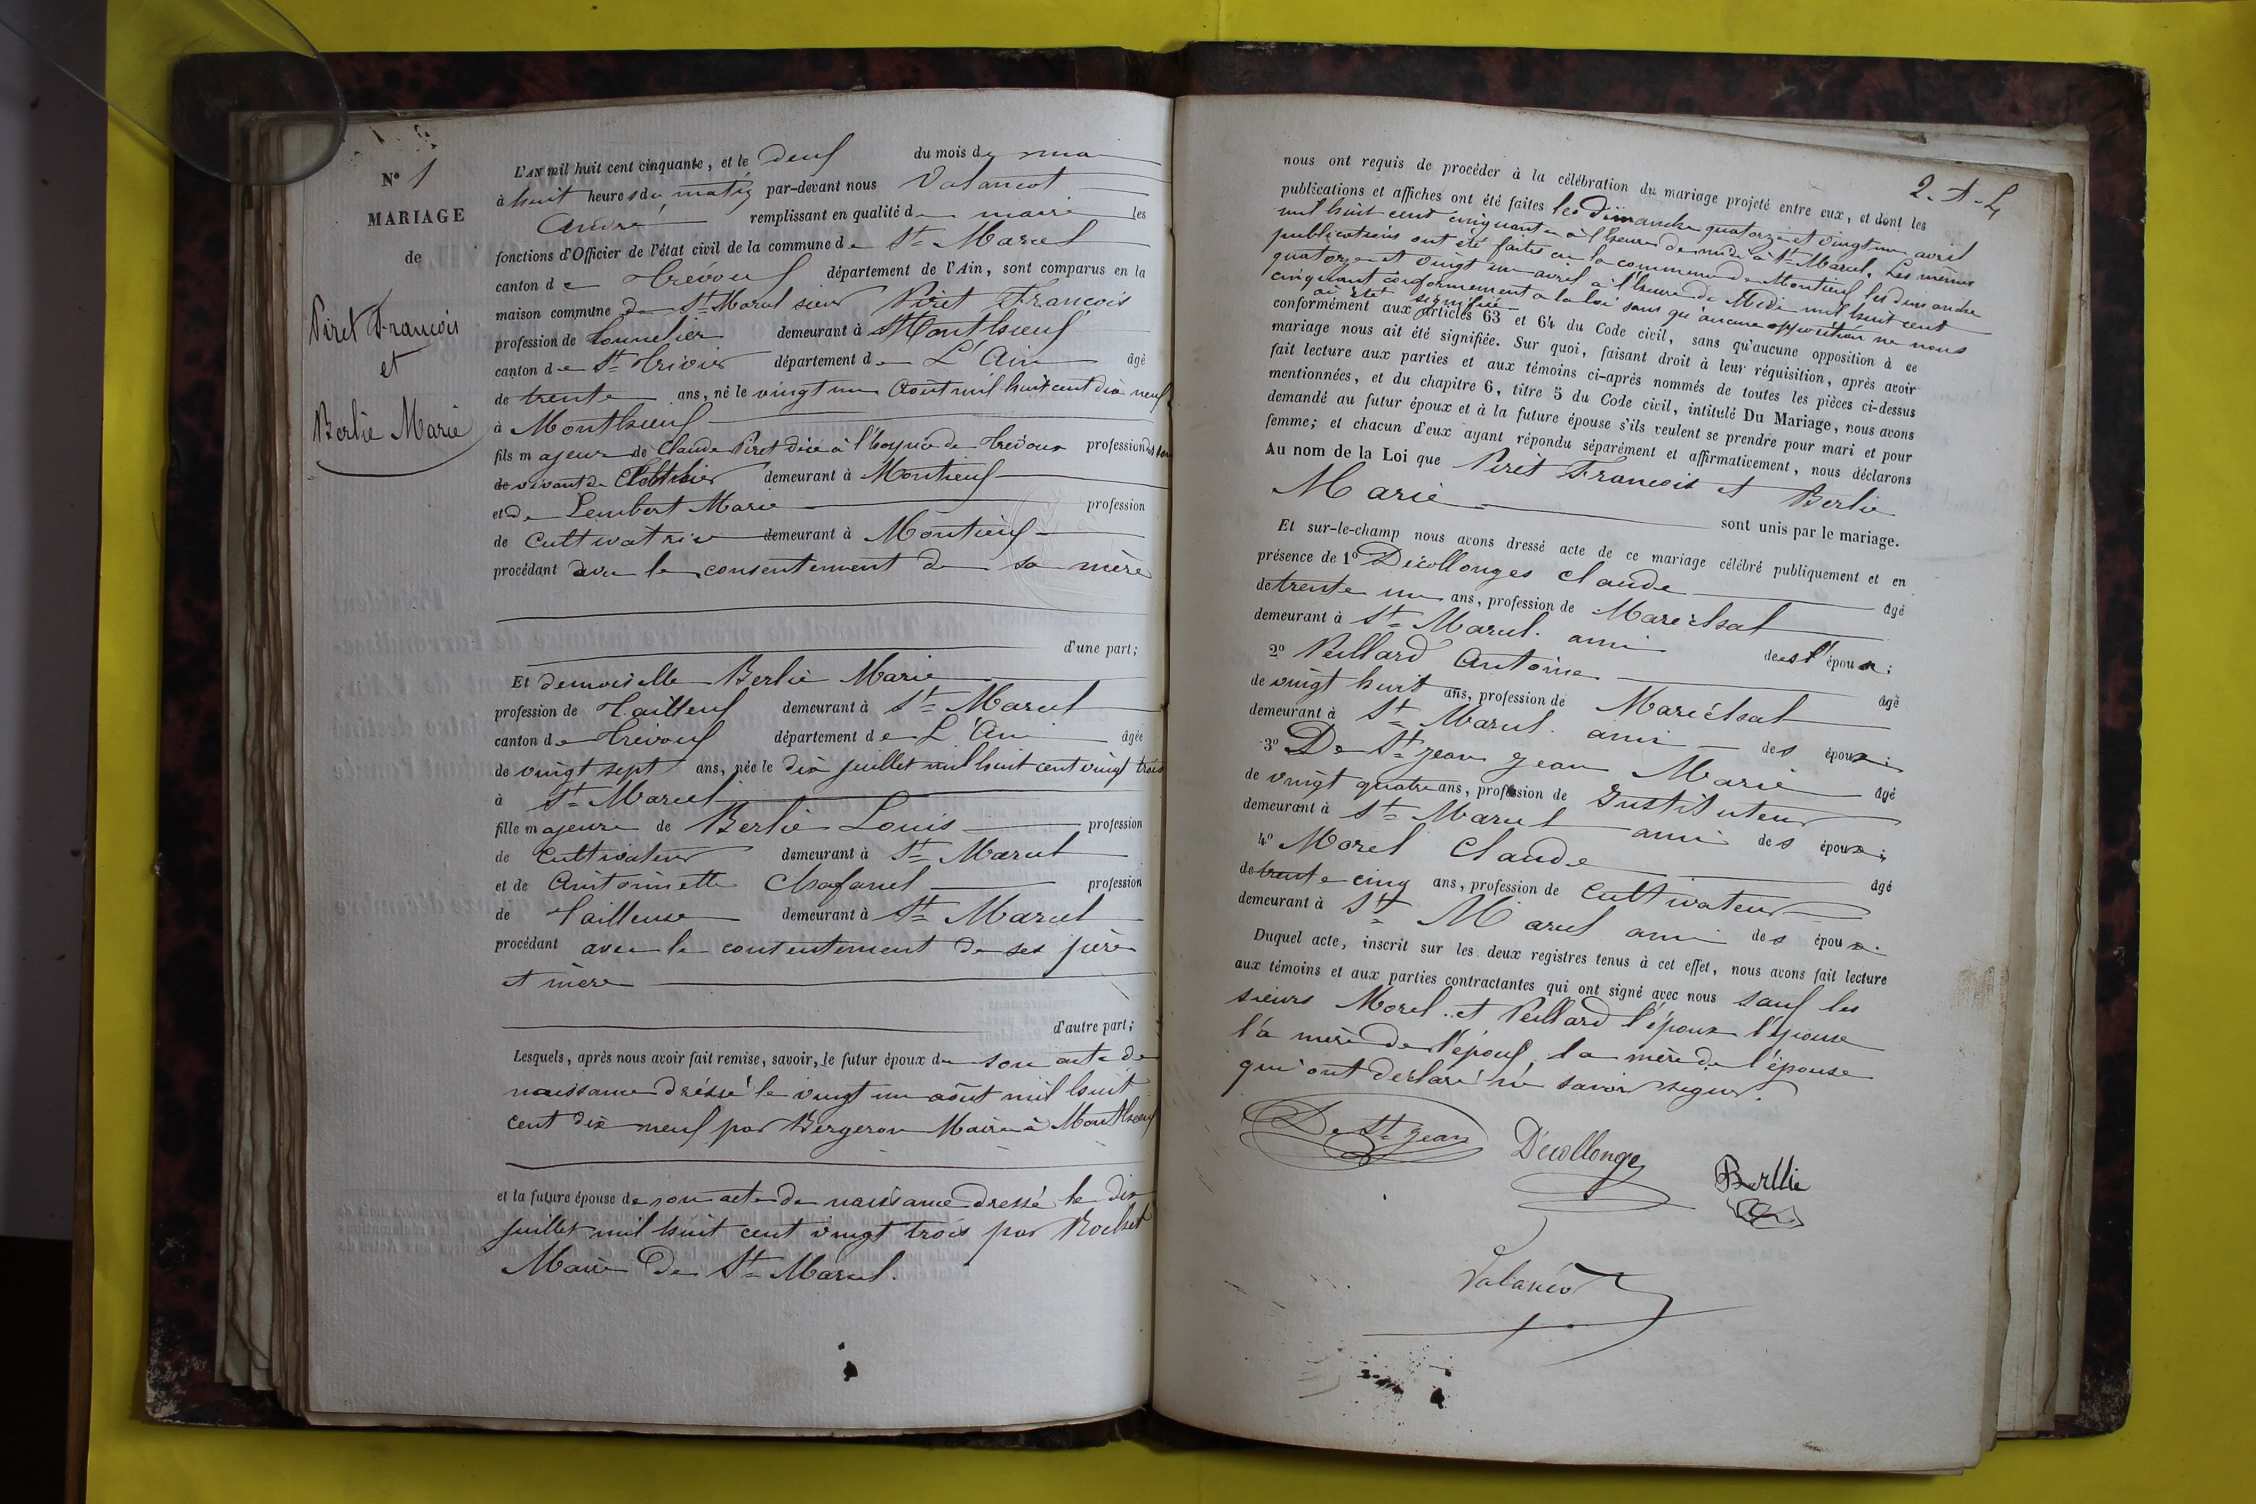 N° 1
MARIAGE
de
Piret François
et
Berlie Marie
L'AN mil huit cent cinquante, et le deuf du mois de mai
à huit heures du matin par-devant nous Valancot
André remplissant en qualité de maire les
fonctions d'Officier de l'état civil de la commune de St Marcel
canton de Trévouf département de l'Ain, sont comparus en la
maison commune de St Marcel sieur Piret François
profession de tonnelier demeurant à Monthieuf
canton de St Trivier département de L'Ain âgé
de trente ans, né le vingt un Août mil huit cent dix neuf
à Monthieuf
fils majeur de Claude Piret à l'hopital de Trévoux profession
de vivant de demeurant à Montieuf
et de Lembert Marie profession
de Cultivatrice demeurant à Montieuf
procédant avec le consentement de sa mère
d'une part;
Et demoiselle Berlie Marie
profession de Tailleuf demeurant à St Marcel
canton de Trevouf département de L'Ain âgée
de vingt sept ans, née le dix juillet mil huit cent vingt trois
à St Marcel
fille majeure de Berlie Louis profession
de Cultivateur demeurant à St Marcel
et de Antoinette Chafanel profession
de Tailleuse demeurant à St Marcel
procédant avec le contentement de ses père
et mère
d'autre part;
Lesquels, après nous avoir fait remise, savoir, le futur époux de son acte de
naissance dréssé le vingt un août mil huit
cent dix neuf par Bergeron Maire à Monthieuf
et la future épouse de son acte de naissance dressé le dix
juillet mil huit cent vingt trois par Rochet
Maire De St Marcel.
2. A. L
nous ont requis de procéder à la célébration du mariage projeté entre eux, et dont les
publications et affiches ont été faites les dimanche quatorze et vingt un avril
mil huit cent cinquante à l'heure de midi à St Marcel. Les mêmes
publications ont été faites en la commune de Montieuf les dimanche
quatorze et vingt un avril à l'heure de Midi mil huit cent
cinquant conformement a la loi sans qu'aucune opposition ne nous
ai été signifiée
conformément aux articles 63 et 64 du Code civil, sans qu'aucune opposition à ce
mariage nous ait été signifiée. Sur quoi, faisant droit à leur réquisition, après avoir
fait lecture aux parties et aux témoins ci-après nommés de toutes les pièces ci-dessus
mentionnées, et du chapitre 6, titre 5 du Code civil, intitulé Du Mariage, nous avons
demandé au futur époux et à la future épouse s'ils veulent se prendre pour mari et pour
femme; et chacun d'eux ayant répondu séparément et affirmativement, nous déclarons
Au nom de la Loi que Piret François et Berlie
Marie sont unis par le mariage.
Et sur-le-champ nous avons dressé acte de ce mariage célébré publiquement et en
présence de 1° Décollonges Claude âgé
de trente un ans, profession de Maréchal
demeurant à St Marcel. ami des l'époux;
2° Peillard Antoine âgé
de vingt huit ans, profession de Maréchal
demeurant à St Marcel. ami des époux;
3° De St Jean Jean Marie âgé
de vingt quatre ans, profession de Instituteur
demeurant à St Marcel ami des époux;
4° Morel Claude âgé
de trente cinq ans, profession de Cultivateur
demeurant à St Marcel ami des époux.
Duquel acte, inscrit sur les deux registres tenus à cet effet, nous avons fait lecture
aux témoins et aux parties contractantes qui ont signé avec nous sauf les
sieurs Morel et Peillard l'époux l'épouse
la mère de l'épouf, la mère de l'épouse
qui ont déclaré né savoir signer.
De St Jean Décollonge Berllie
Valancot